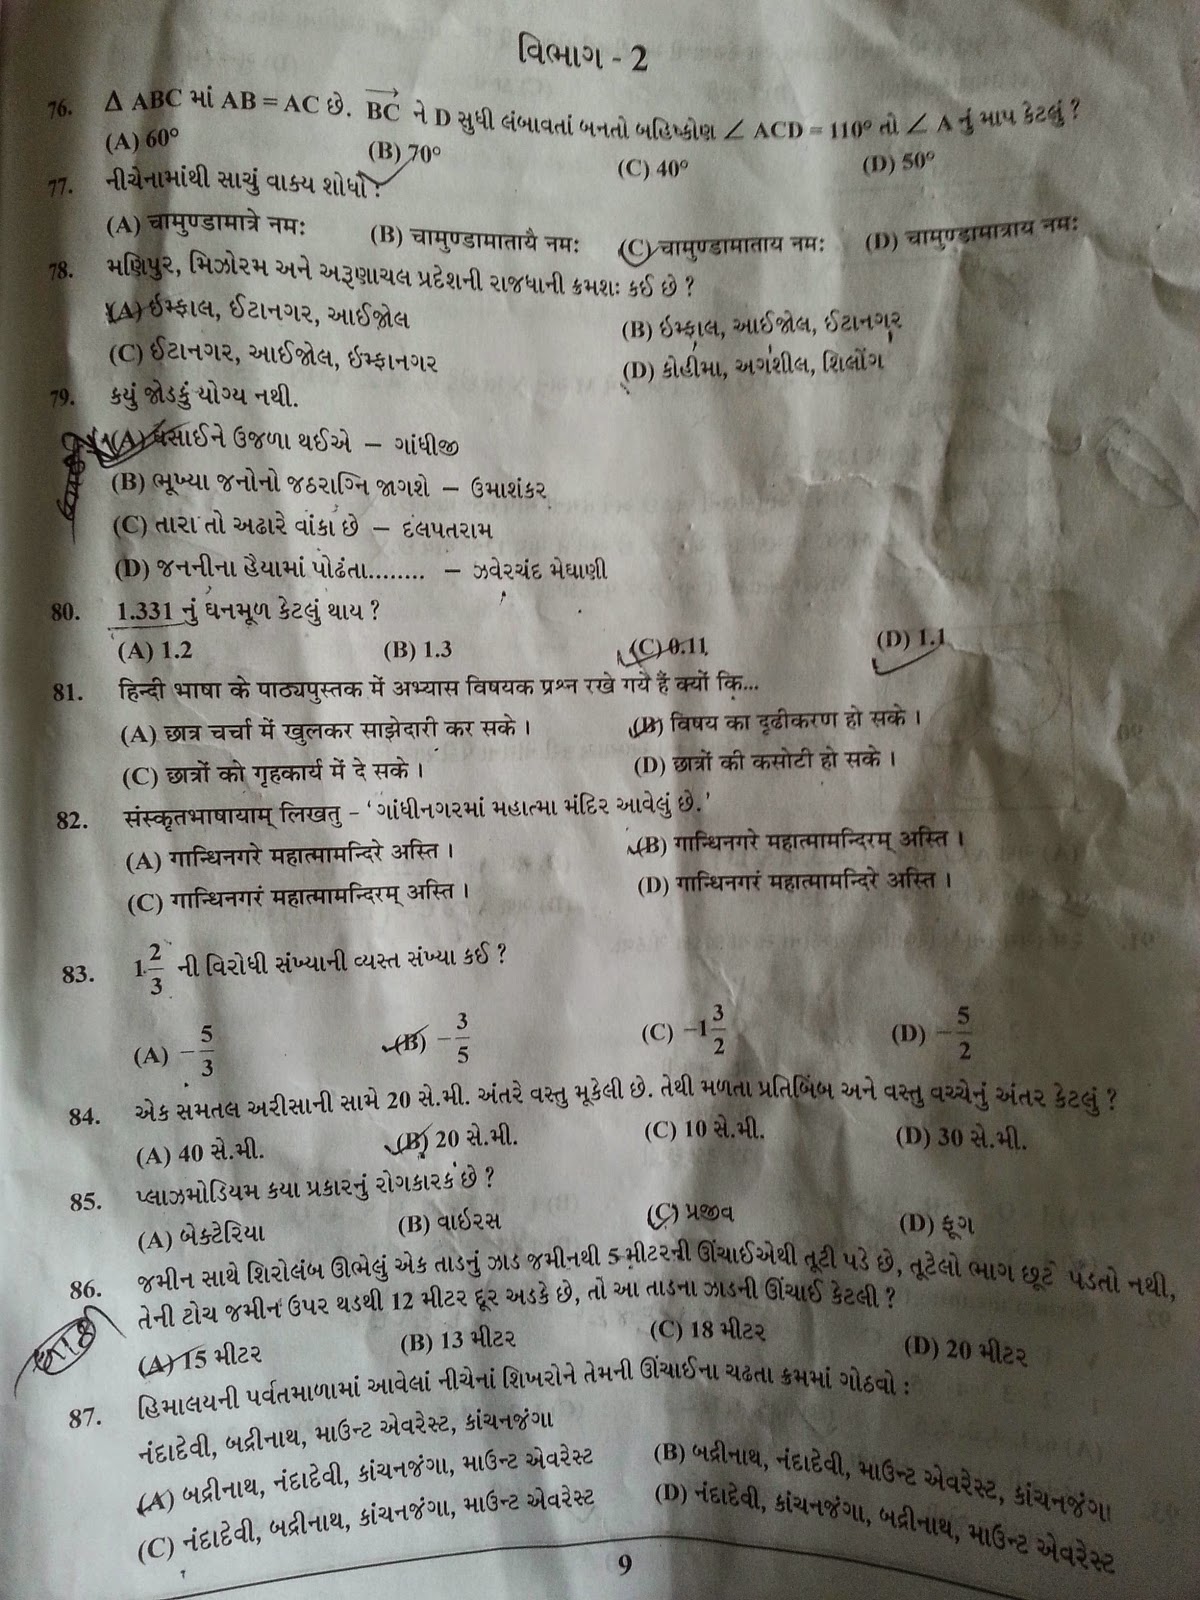 વિભાગ - 2
76. Δ ABC માં AB = AC છે. BC ને D સુધી લંબાવતાં બનતો બહિષ્કોણ ∠ ACD = 110° તો ∠ A નું માપ કેટલું ?
(A) 60° (B) 70° (C) 40° (D) 50°
77. નીચેનામાંથી સાચું વાક્ય શોધો :
(A) चामुण्डामात्रे नमः (B) चामुण्डामातायै नमः (C) चामुण्डामाताय नमः (D) चामुण्डामात्राय नमः
78. મણિપુર, મિઝોરમ અને અરૂણાચલ પ્રદેશની રાજધાની ક્રમશઃ કઈ છે ?
(A) ઇમ્ફાલ, ઈટાનગર, આઈજોલ (B) ઇમ્ફાલ, આઈજોલ, ઈટાનગર
(C) ઈટાનગર, આઈજોલ, ઇમ્ફાનગર (D) કોહીમા, અગંશીલ, શિલોંગ
79. કયું જોડકું યોગ્ય નથી.
(A) ઘસાઈને ઉજળા થઈએ – ગાંધીજી
(B) ભૂખ્યા જનોનો જઠરાગ્નિ જાગશે – ઉમાશંકર
(C) તારા તો અઢારે વાંકા છે – દલપતરામ
(D) જનનીના હૈયામાં પોઢંતા........ – ઝવેરચંદ મેઘાણી
80. 1.331 નું ઘનમૂળ કેટલું થાય ?
(A) 1.2 (B) 1.3 (C) 0.11 (D) 1.1
81. हिन्दी भाषा के पाठ्यपुस्तक में अभ्यास विषयक प्रश्न रखे गये हैं क्यों कि...
(A) छात्र चर्चा में खुलकर साझेदारी कर सके । (B) विषय का दृढीकरण हो सके ।
(C) छात्रों को गृहकार्य में दे सके । (D) छात्रों की कसोटी हो सके ।
82. संस्कृतभाषायाम् लिखतु - ‘ગાંધીનગરમાં મહાત્મા મંદિર આવેલું છે.’
(A) गान्धिनगरे महात्मामन्दिरे अस्ति । (B) गान्धिनगरे महात्मामन्दिरम् अस्ति ।
(C) गान्धिनगरं महात्मामन्दिरम् अस्ति । (D) गान्धिनगरं महात्मामन्दिरे अस्ति ।
83. 1 2/3 ની વિરોધી સંખ્યાની વ્યસ્ત સંખ્યા કઈ ?
(A) −5/3 (B) −3/5 (C) −1 3/2 (D) −5/2
84. એક સમતલ અરીસાની સામે 20 સે.મી. અંતરે વસ્તુ મૂકેલી છે. તેથી મળતા પ્રતિબિંબ અને વસ્તુ વચ્ચેનું અંતર કેટલું ?
(A) 40 સે.મી. (B) 20 સે.મી. (C) 10 સે.મી. (D) 30 સે.મી.
85. પ્લાઝમોડિયમ કયા પ્રકારનું રોગકારક છે ?
(A) બેક્ટેરિયા (B) વાઇરસ (C) પ્રજીવ (D) ફૂગ
86. જમીન સાથે શિરોલંબ ઊભેલું એક તાડનું ઝાડ જમીનથી 5 મીટરની ઊંચાઈએથી તૂટી પડે છે, તૂટેલો ભાગ છૂટો પડતો નથી,
તેની ટોચ જમીન ઉપર થડથી 12 મીટર દૂર અડકે છે, તો આ તાડના ઝાડની ઊંચાઈ કેટલી ?
(A) 15 મીટર (B) 13 મીટર (C) 18 મીટર (D) 20 મીટર
87. હિમાલયની પર્વતમાળામાં આવેલાં નીચેનાં શિખરોને તેમની ઊંચાઈના ચઢતા ક્રમમાં ગોઠવો :
નંદાદેવી, બદ્રીનાથ, માઉન્ટ એવરેસ્ટ, કાંચનજંગા
(A) બદ્રીનાથ, નંદાદેવી, કાંચનજંગા, માઉન્ટ એવરેસ્ટ (B) બદ્રીનાથ, નંદાદેવી, માઉન્ટ એવરેસ્ટ, કાંચનજંગા
(C) નંદાદેવી, બદ્રીનાથ, કાંચનજંગા, માઉન્ટ એવરેસ્ટ (D) નંદાદેવી, કાંચનજંગા, બદ્રીનાથ, માઉન્ટ એવરેસ્ટ
9